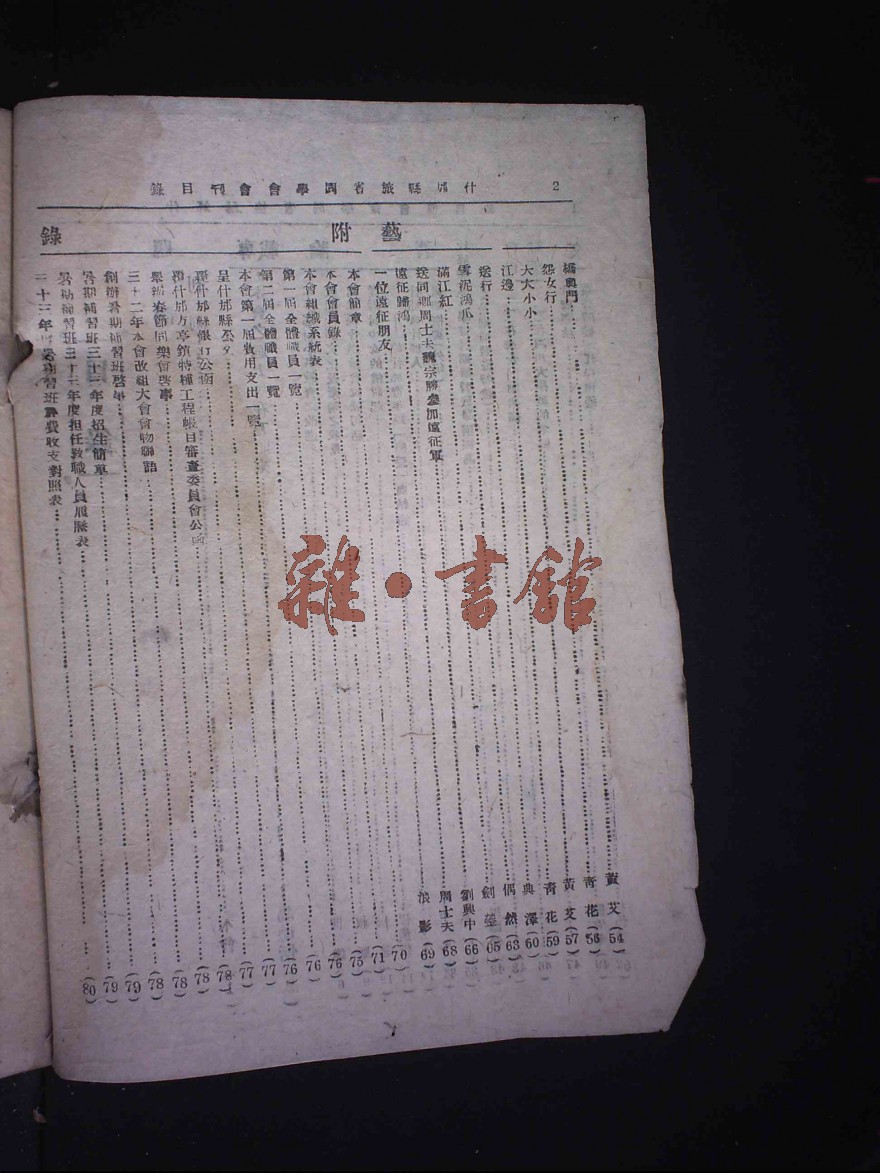 2 什邡縣旅省同學會會刊目錄
藝
橋與門……黃艾(54)
怨女行……青花(56)
大大小小……黃艾(57)
江邊……青花(59)
送行……典澤(60)
雪泥鴻爪……偶然(63)
滿江紅……劍(65)
送同鄉周士夫魏宗勝參加遠征軍……劉興中(66)
遠征歸鴻……周士夫(68)
一位遠征朋友……浪影(69)
附錄
本會簡章……(70)
本會會員錄……(71)
本會組織系統表……(75)
第一屆全體職員一覽……(76)
第二屆全體職員一覽……(76)
本會第一屆收用支出一覽……(77)
呈什邡縣公文……(77)
什邡縣銀行公函……(78)
什邡方亭鎮特種工程帳目審查委員會公函……(78)
舉辦春節同樂會啓事……(78)
三十二年本會改組大會會物聯語……(78)
創辦暑期補習班啓事……(79)
暑期補習班三十三年度招生簡章……(79)
暑期補習班三十三年度担任教職人員履歷表……(80)
三十三年補習班經費收支對照表……
雜·書館